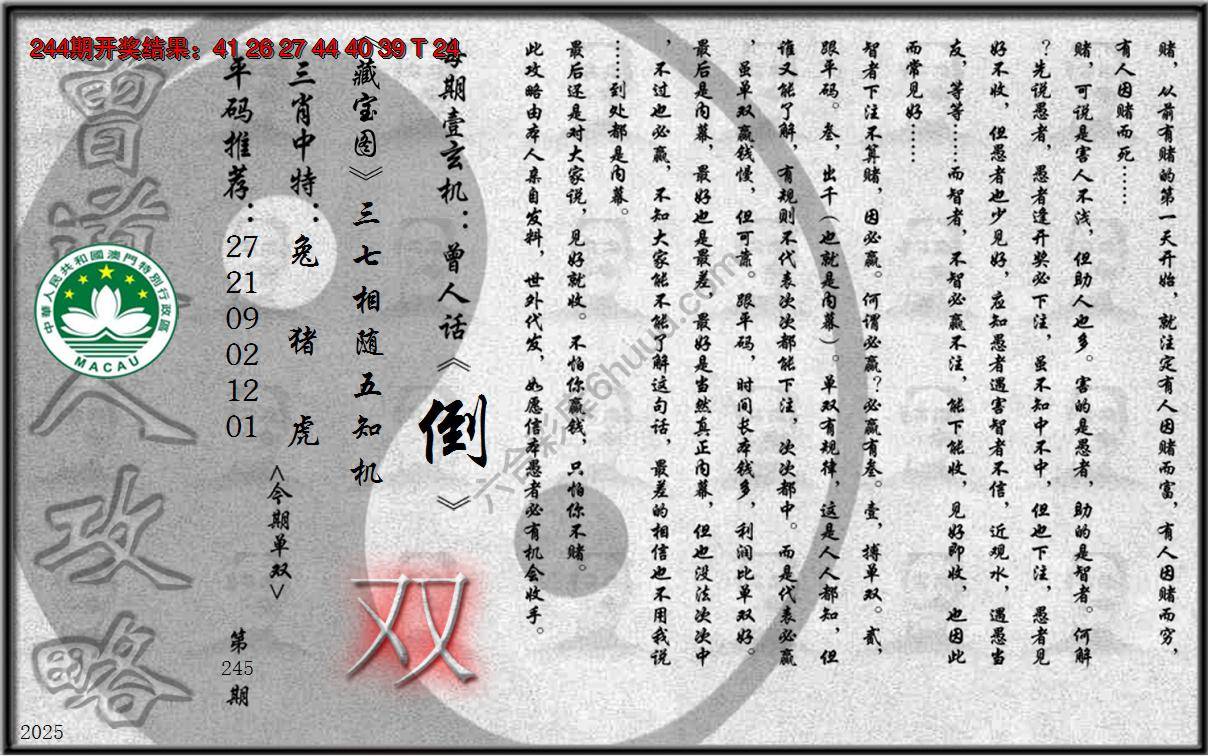 244期开奖结果：41 26 27 44 40 39 T 24
赌，从前有赌的第一天开始，就注定有人因赌而富，有人因赌而穷，
有人因赌而死……
赌，可说是害人不浅，但助人也多。害的是愚者，助的是智者。何解
？先说愚者，愚者逢开奖必下注，虽不知中不中，但也下注，愚者见
好不收，但愚者也少见好，应知愚者遇害智者不信，近观水，遇愚当
友，等等……而智者，不智必赢不注，能下能收，见好即收，也因此
而常见好……
智者下注不算赌，因必赢。何谓必赢？必赢有叁。壹，搏单双。贰，
跟平码。叁，出千（也就是内幕）。单双有规律，这是人人都知，但
谁又能了解，有规则不代表次次都能下注，次次都中。而是代表必赢
，虽单双赢钱慢，但可靠。跟平码，时间长本钱多，利润比单双好。
最后是内幕，最好也是最差，最好是当然真正内幕，但也没法次次中
，不过也必赢，不知大家能不能了解这句话，最差的相信也不用我说
……到处都是内幕。
最后还是对大家说，见好就收。不怕你赢钱，只怕你不赌。
此攻略由本人亲自发料，世外代发，如愿信本愚者必有机会收手。
每期壹玄机：曾人话《倒》
《藏宝图》三七相随五知机
双
三肖中特：兔 猪 虎
<今期单双>
平码推荐：27 21 09 02 12 01
第245期
曾道人攻略
中華人民共和國澳門特別行政區
MACAU
六合彩库6huu.com
2025